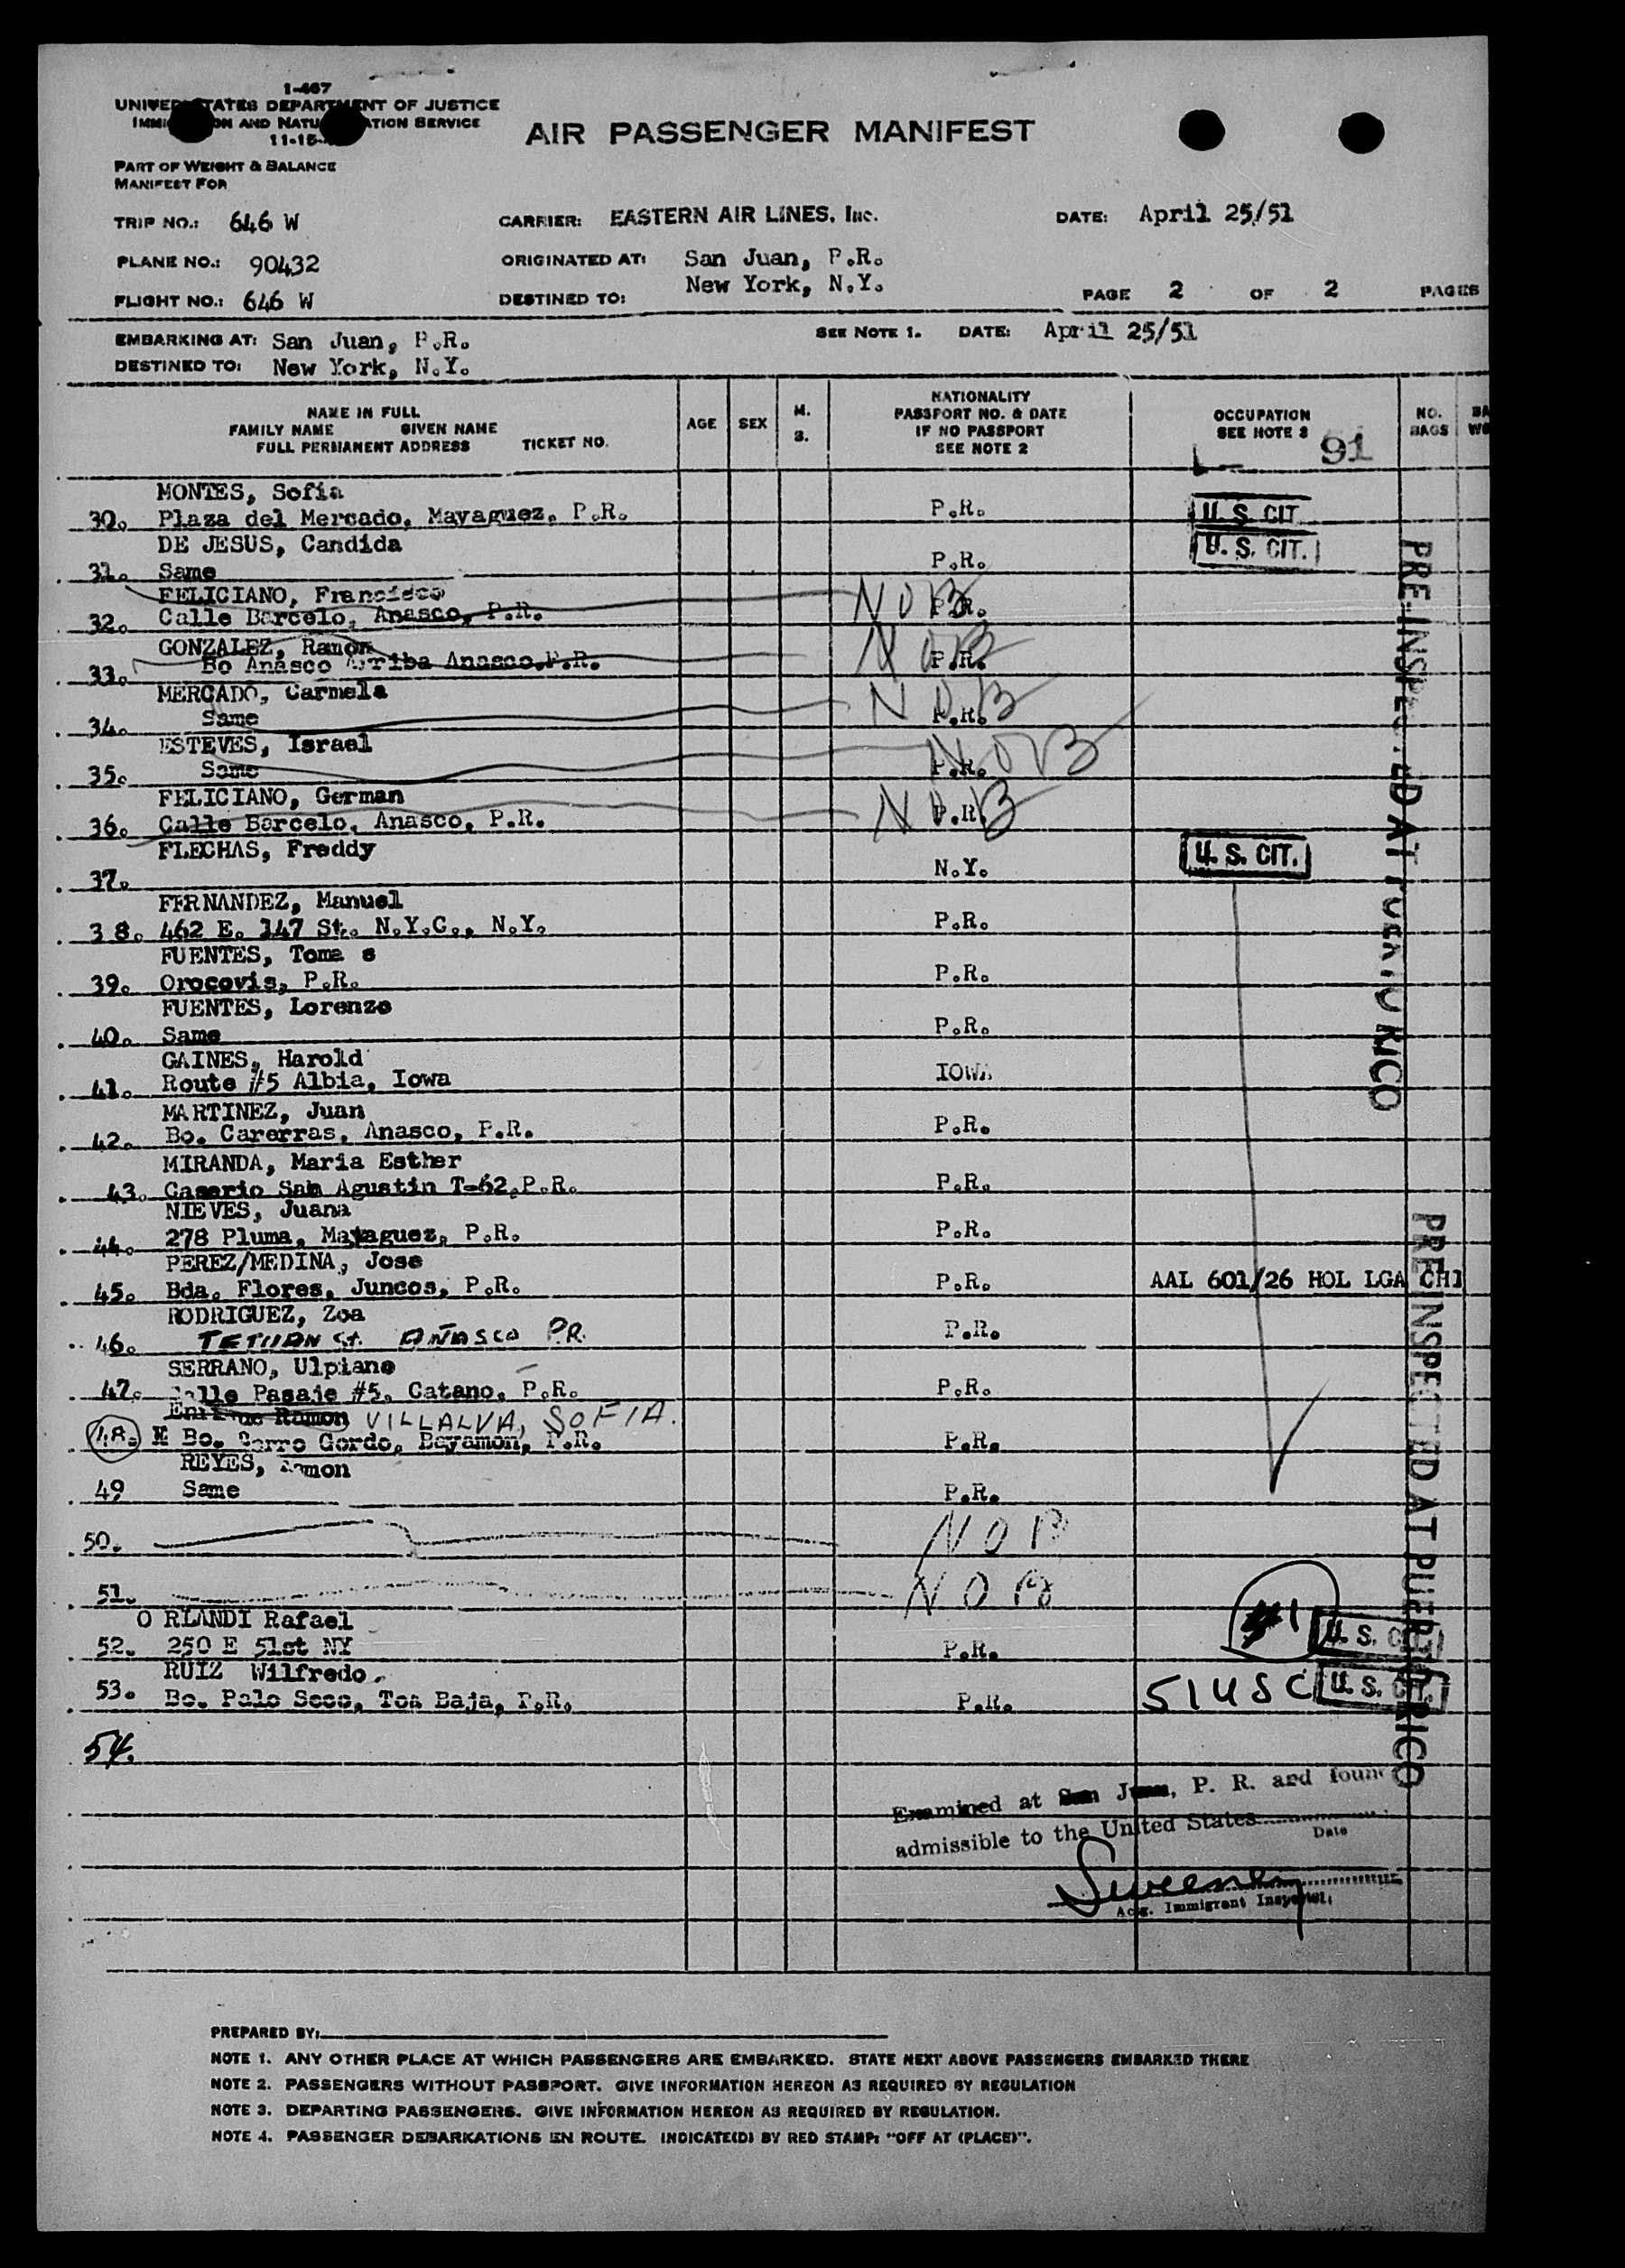 I-467
UNITED STATES DEPARTMENT OF JUSTICE
IMMIGRATION AND NATURALIZATION SERVICE
11-15-
AIR PASSENGER MANIFEST
PART OF WEIGHT & BALANCE
MANIFEST FOR
TRIP NO.: 646 W CARRIER: EASTERN AIR LINES, Inc. DATE: April 25/51
PLANE NO.: 90432 ORIGINATED AT: San Juan, P.R.
FLIGHT NO.: 646 W DESTINED TO: New York, N.Y. PAGE 2 OF 2 PAGES
EMBARKING AT: San Juan, P.R. SEE NOTE 1. DATE: April 25/51
DESTINED TO: New York, N.Y.
NAME IN FULL
FAMILY NAME GIVEN NAME
FULL PERMANENT ADDRESS TICKET NO.
AGE SEX M. S.
NATIONALITY
PASSPORT NO. & DATE
IF NO PASSPORT
SEE NOTE 2
OCCUPATION
SEE NOTE 3 91
NO. BAGS
MONTES, Sofia
30. Plaza del Mercado, Mayaguez, P.R. P.R. U. S. CIT
DE JESUS, Candida
31. Same P.R. U. S. CIT.
FELICIANO, Francisco
32. Calle Barcelo, Anasco, P.R. P.R. NOB
GONZALEZ, Ramon
33. Bo Anasco Arriba Anasco,P.R. P.R. NOB
MERCADO, Carmela
34. Same P.R. NOB
ESTEVES, Israel
35. Same P.R. NOB
FELICIANO, German
36. Calle Barcelo, Anasco, P.R. P.R. NOB
FLECHAS, Freddy
37. N.Y. U. S. CIT.
FERNANDEZ, Manuel
38. 462 E. 147 St. N.Y.C., N.Y. P.R.
FUENTES, Toma s
39. Orocovis, P.R. P.R.
FUENTES, Lorenzo
40. Same P.R.
GAINES, Harold
41. Route #5 Albia, Iowa IOWA
MARTINEZ, Juan
42. Bo. Carerras, Anasco, P.R. P.R.
MIRANDA, Maria Esther
43. Caserio San Agustin T-62,P.R. P.R.
NIEVES, Juana
44. 278 Pluma, Mayaguez, P.R. P.R.
PEREZ/MEDINA, Jose
45. Bda. Flores, Juncos, P.R. P.R. AAL 601/26 HOL LGA CHI
RODRIGUEZ, Zoa
46. TETUAN St. AÑASCO PR. P.R.
SERRANO, Ulpiano
47. Calle Pasaje #5, Catano, P.R. P.R.
Enrique Ramon VILLALVA, SOFIA.
48. Bo. Cerro Gordo, Bayamon, P.R. P.R.
REYES, Ramon
49 Same P.R.
50. NOB
51. NOB
O RLANDI Rafael
52. 250 E 51st NY P.R. #1 U. S. CIT.
RUIZ Wilfredo.
53. Bo. Palo Seco, Toa Baja, P.R. P.R. 51 USC U. S. CIT.
54.
PRE-INSPECTED AT PUERTO RICO
PRE-INSPECTED AT PUERTO RICO
Examined at San Juan, P. R. and found
admissible to the United States
Date
Sweeney
Actg. Immigrant Inspector
PREPARED BY:
NOTE 1. ANY OTHER PLACE AT WHICH PASSENGERS ARE EMBARKED. STATE NEXT ABOVE PASSENGERS EMBARKED THERE
NOTE 2. PASSENGERS WITHOUT PASSPORT. GIVE INFORMATION HEREON AS REQUIRED BY REGULATION
NOTE 3. DEPARTING PASSENGERS. GIVE INFORMATION HEREON AS REQUIRED BY REGULATION.
NOTE 4. PASSENGER DEBARKATIONS EN ROUTE. INDICATE(D) BY RED STAMP: "OFF AT (PLACE)".